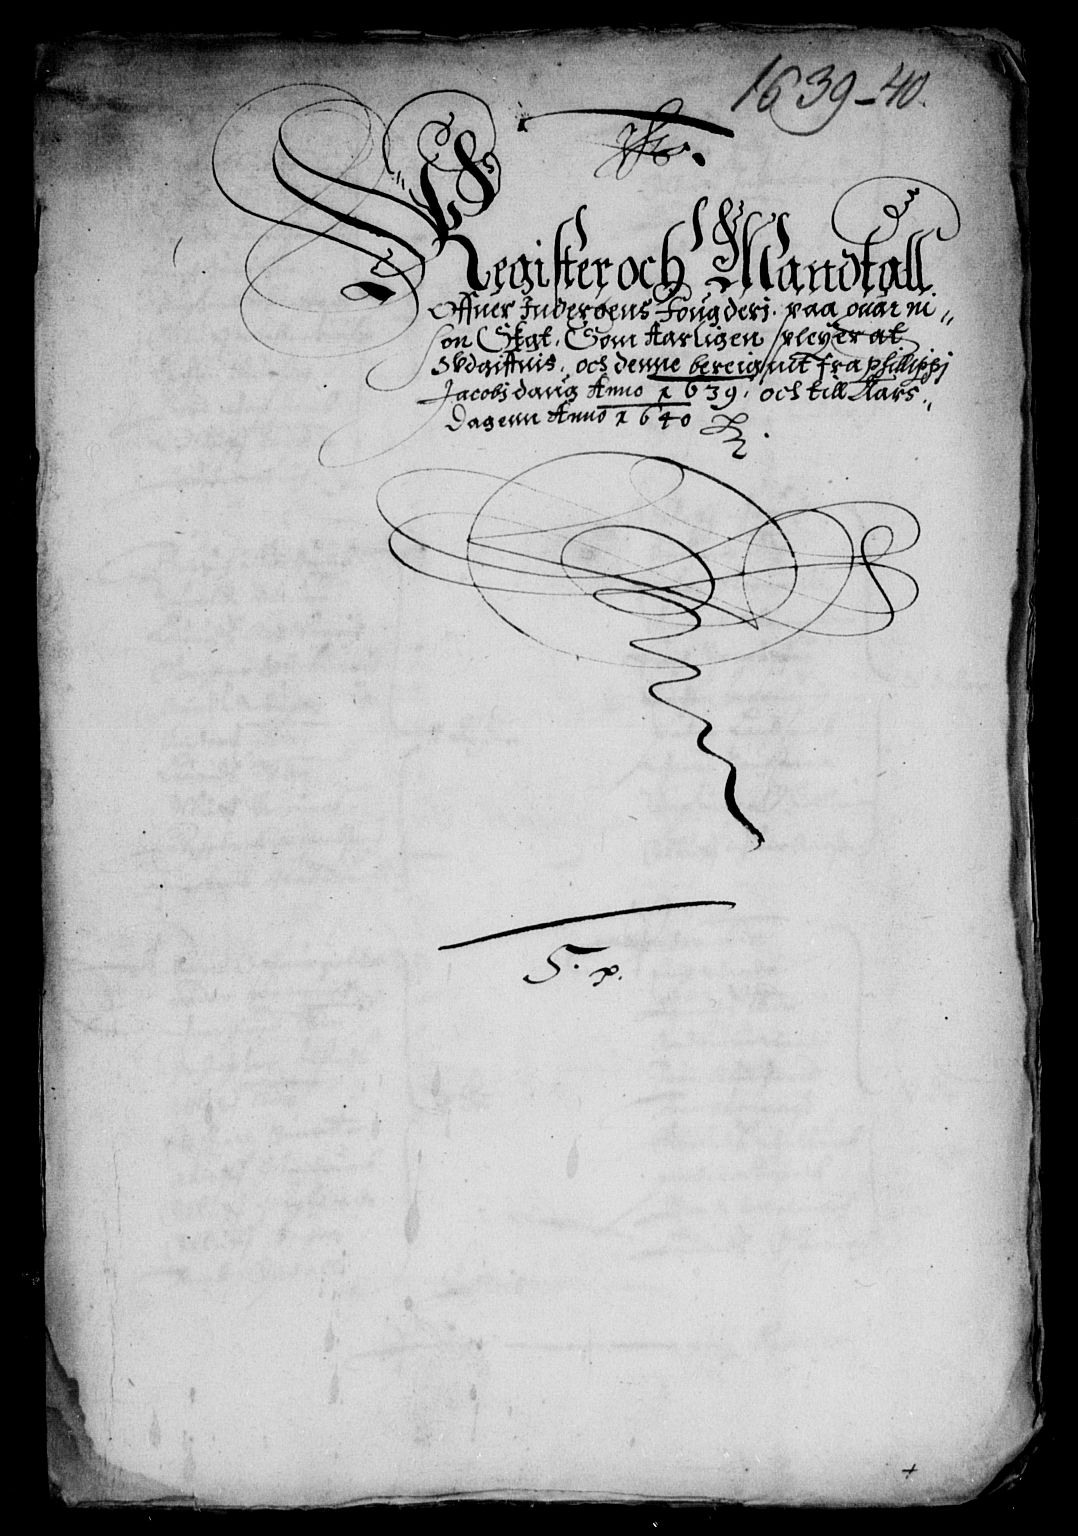 1639-40.
Register och Mandtall
Offuer Inderøens Fougderj. paa quar ni„
son Skat. Som Aarligen pleyer at
Vdgiffuis. och denne beregnit fra phillippj
Jacobj daug Anno 1639. och till Aars„
Dagenn Anno 1640